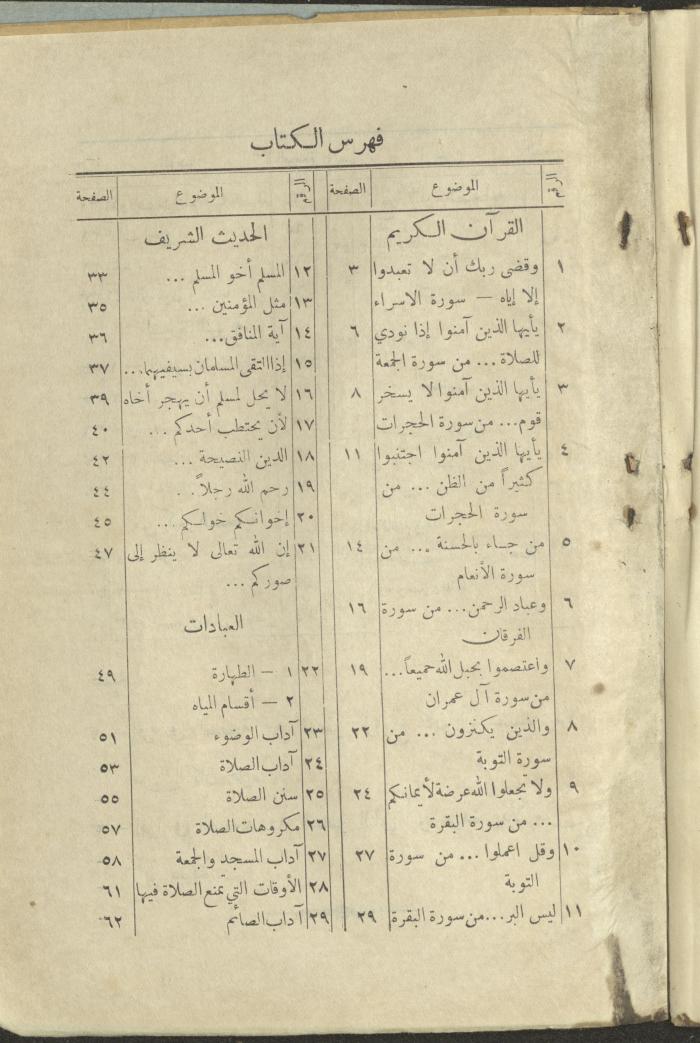 فهرس الكتاب
الرقم الموضوع الصفحة
القرآن الكريم
١ وقضى ربك أن لا تعبدوا ٣
إلا إياه — سورة الاسراء
٢ يأيها الذين آمنوا إذا نودي ٦
للصلاة ... من سورة الجمعة
٣ يأيها الذين آمنوا لا يسخر ٨
قوم... من سورة الحجرات
٤ يأيها الذين آمنوا اجتنبوا ١١
كثيراً من الظن ... من
سورة الحجرات
٥ من جاء بالحسنة ... من ١٤
سورة الأنعام
٦ وعباد الرحمن... من سورة ١٦
الفرقان
٧ واعتصموا بحبل الله جميعاً... ١٩
من سورة آل عمران
٨ والذين يكنزون ... من ٢٢
سورة التوبة
٩ ولا تجعلوا الله عرضة لأيمانكم ٢٤
... من سورة البقرة
١٠ وقل اعملوا ... من سورة ٢٧
التوبة
١١ ليس البر...من سورة البقرة ٢٩
الرقم الموضوع الصفحة
الحديث الشريف
١٢ المسلم أخو المسلم ... ٣٣
١٣ مثل المؤمنين ... ٣٥
١٤ آية المنافق... ٣٦
١٥ إذا التقى المسلمان بسيفيهما... ٣٧
١٦ لا يحل لمسلم أن يهجر أخاه ٣٩
١٧ لأن يحتطب أحدكم ... ٤٠
١٨ الدين النصيحة ... ٤٢
١٩ رحم الله رجلاً... ٤٤
٢٠ إخوانكم خولكم ... ٤٥
٢١ إن الله تعالى لا ينظر إلى ٤٧
صوركم ...
العبادات
٢٢ ١ — الطهارة ٤٩
٢ — أقسام المياه
٢٣ آداب الوضوء ٥١
٢٤ آداب الصلاة ٥٣
٢٥ سنن الصلاة ٥٥
٢٦ مكروهات الصلاة ٥٧
٢٧ آداب المسجد والجمعة ٥٨
٢٨ الأوقات التي تمنع الصلاة فيها ٦١
٢٩ آداب الصائم ٦٢